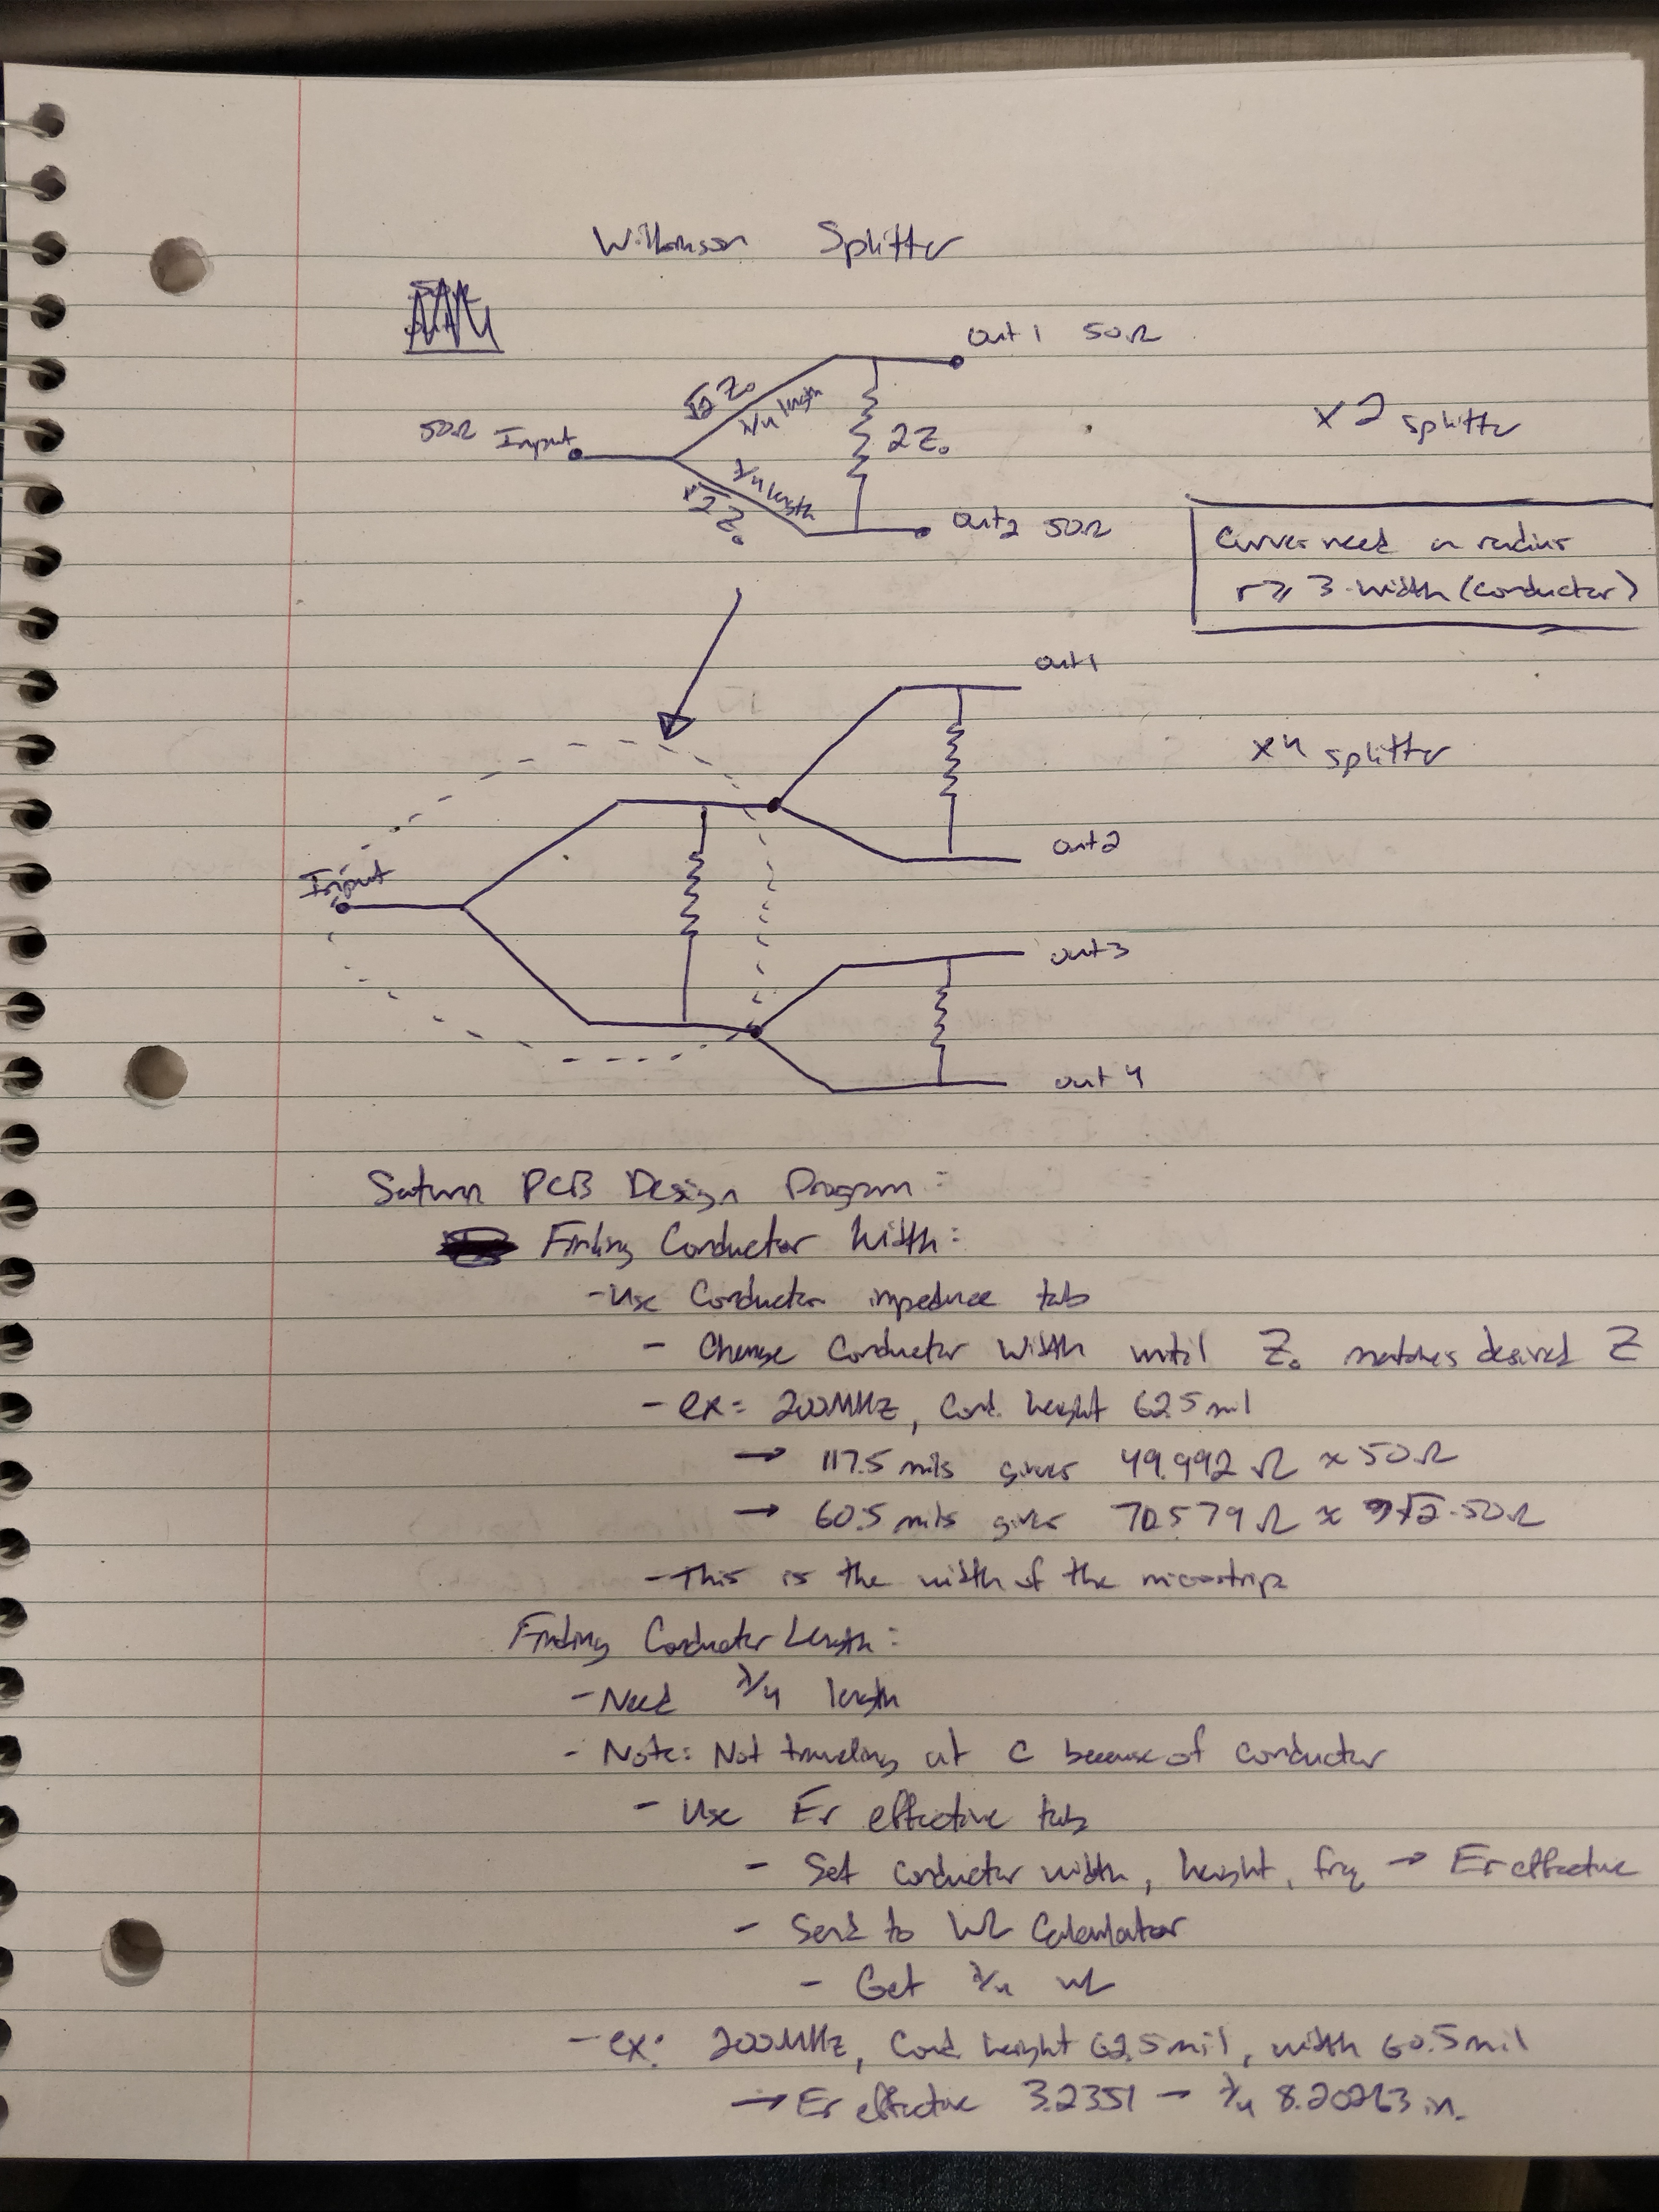 Wilkinson Splitter
out 1 50Ω
√2 Z₀
λ/4 length
50Ω Input
2Z₀
x2 splitter
λ/4 length
√2 Z₀
out2 50Ω
Curves need a radius
r ≥ 3·width (conductor)
out1
x4 splitter
out2
Input
out3
out 4
Saturn PCB Design Program:
Finding Conductor Width:
- Use Conductor impedance tab
- Change Conductor Width until Z₀ matches desired Z
- ex: 200MHz, Cond. height 62.5 mil
→ 117.5 mils gives 49.992 Ω ≈ 50Ω
→ 60.5 mils gives 70.579 Ω ≈ √2·50Ω
- This is the width of the microstrip
Finding Conductor Length:
- Need λ/4 length
- Note: Not traveling at C because of conductor
- Use Er effective tab
- Set conductor width, height, frq → Er effective
- Send to WL Calculator
- Get λ/4 WL
- ex: 200MHz, Cond. height 62.5mil, width 60.5mil
→ Er effective 3.2351 → λ/4 8.20263 in.